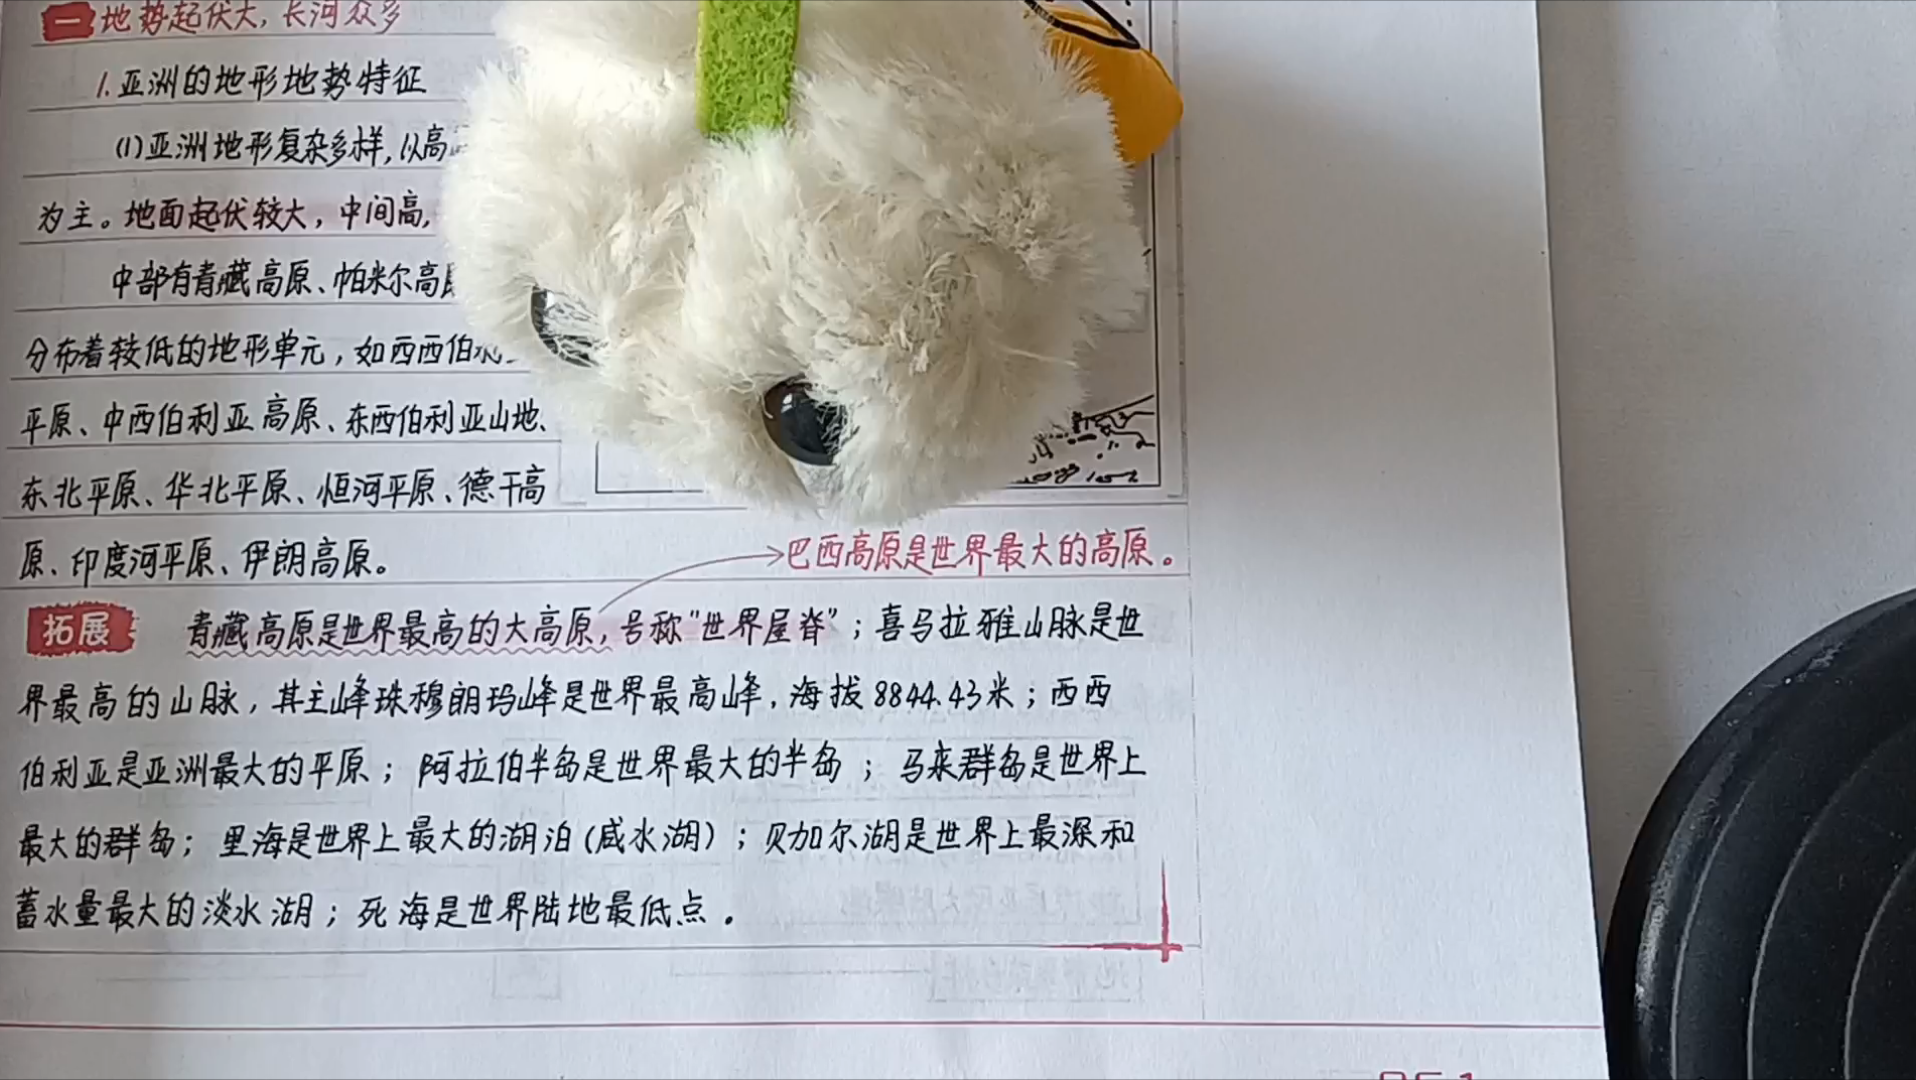 一 地势起伏大，长河众多
1.亚洲的地形地势特征
(1)亚洲地形复杂多样，以高
为主。地面起伏较大，中间高，
中部有青藏高原、帕米尔高原
分布着较低的地形单元，如西西伯利亚
平原、中西伯利亚高原、东西伯利亚山地、
东北平原、华北平原、恒河平原、德干高
原、印度河平原、伊朗高原。
巴西高原是世界最大的高原。
拓展 青藏高原是世界最高的大高原，号称“世界屋脊”；喜马拉雅山脉是世
界最高的山脉，其主峰珠穆朗玛峰是世界最高峰，海拔8844.43米；西西
伯利亚是亚洲最大的平原；阿拉伯半岛是世界最大的半岛；马来群岛是世界上
最大的群岛；里海是世界上最大的湖泊(咸水湖)；贝加尔湖是世界上最深和
蓄水量最大的淡水湖；死海是世界陆地最低点。